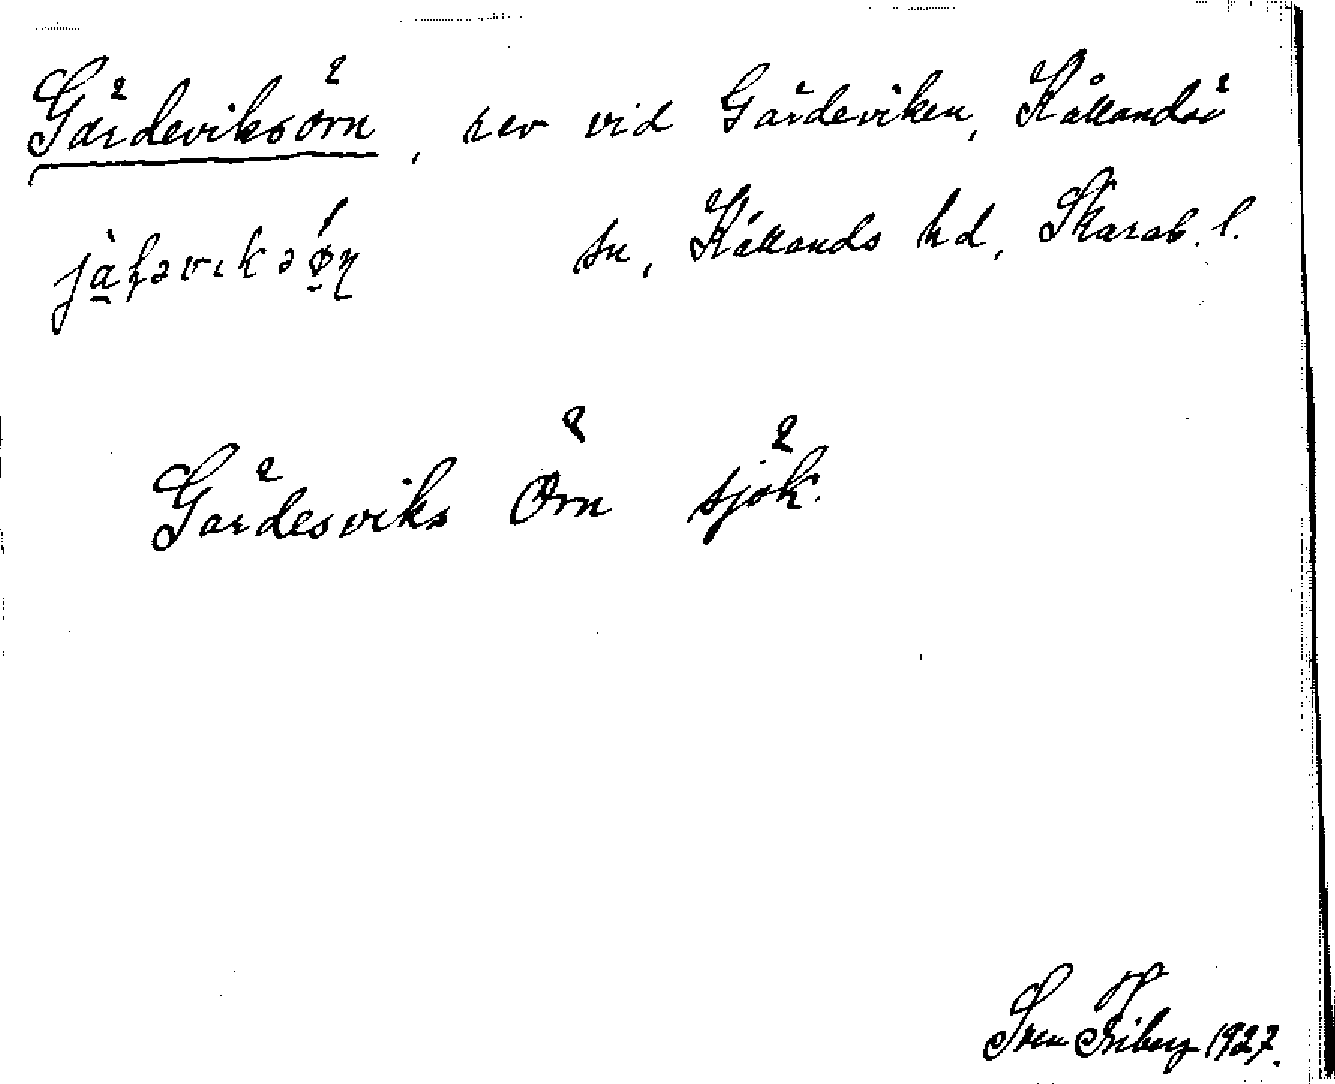 Gärdeviksörn, rev vid Gärdeviken, Kållandsö
sn, Kållands hd, Skarab. l.
Gärdesviks Örn sjök.
Sven Friberg 1927.